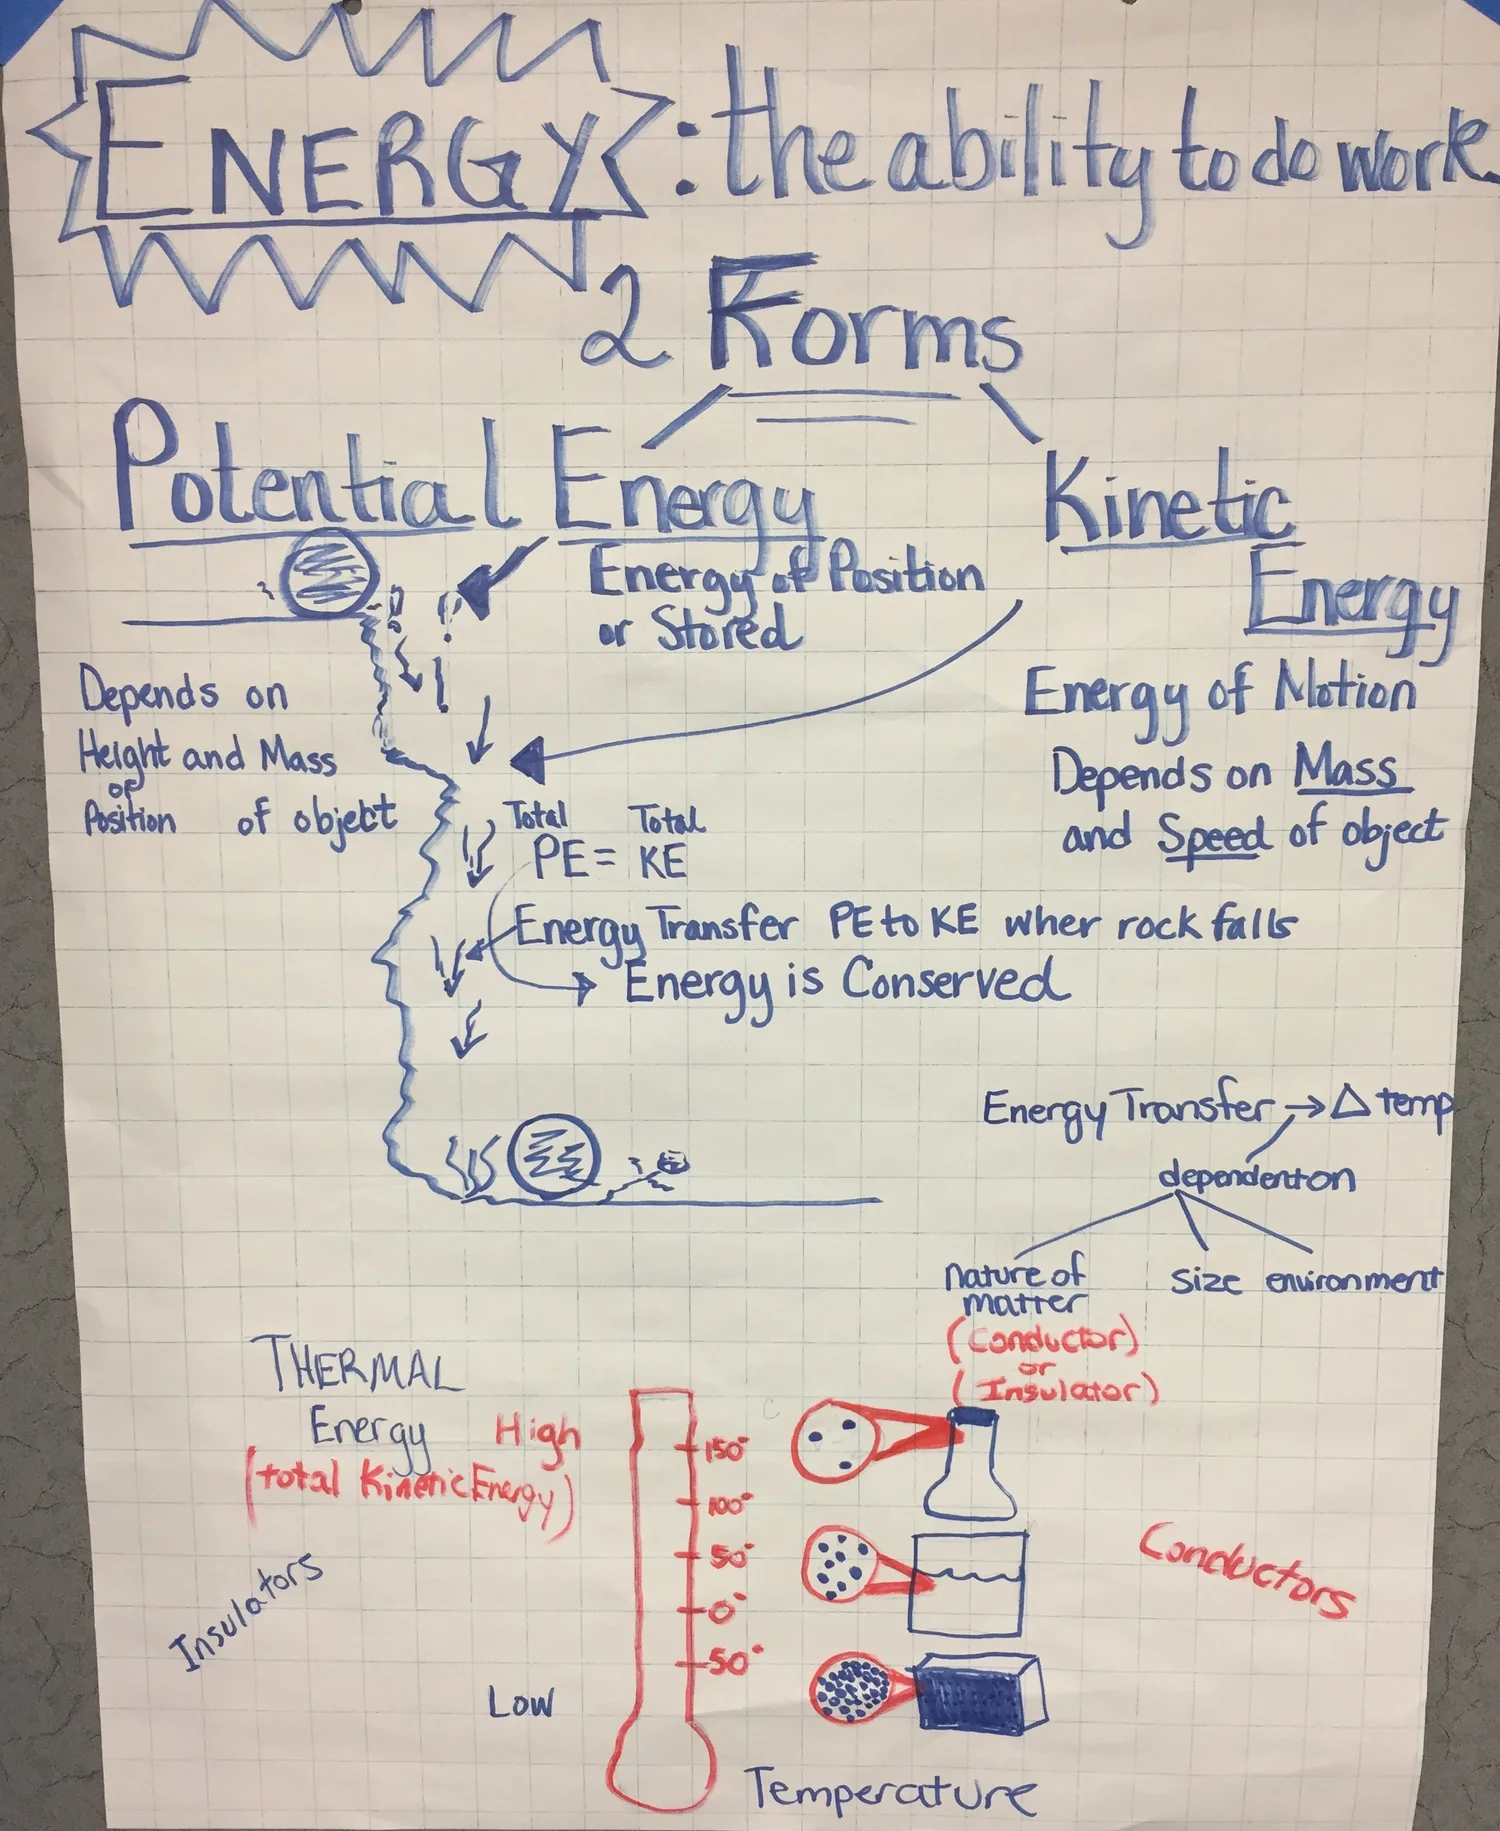 ENERGY : the ability to do work
2 Forms
Potential Energy
Energy of Position
or Stored
Depends on
Height and Mass
or
Position of object
Kinetic
Energy
Energy of Motion
Depends on Mass
and Speed of object
Total Total
PE = KE
Energy Transfer PE to KE wher rock falls
Energy is Conserved
Energy Transfer → Δ temp
dependent on
nature of
matter
size environment
(Conductor)
or
(Insulator)
THERMAL
Energy
(total Kinetic Energy)
High
150°
100°
50°
0°
-50°
Low
Insulators
Conductors
Temperature